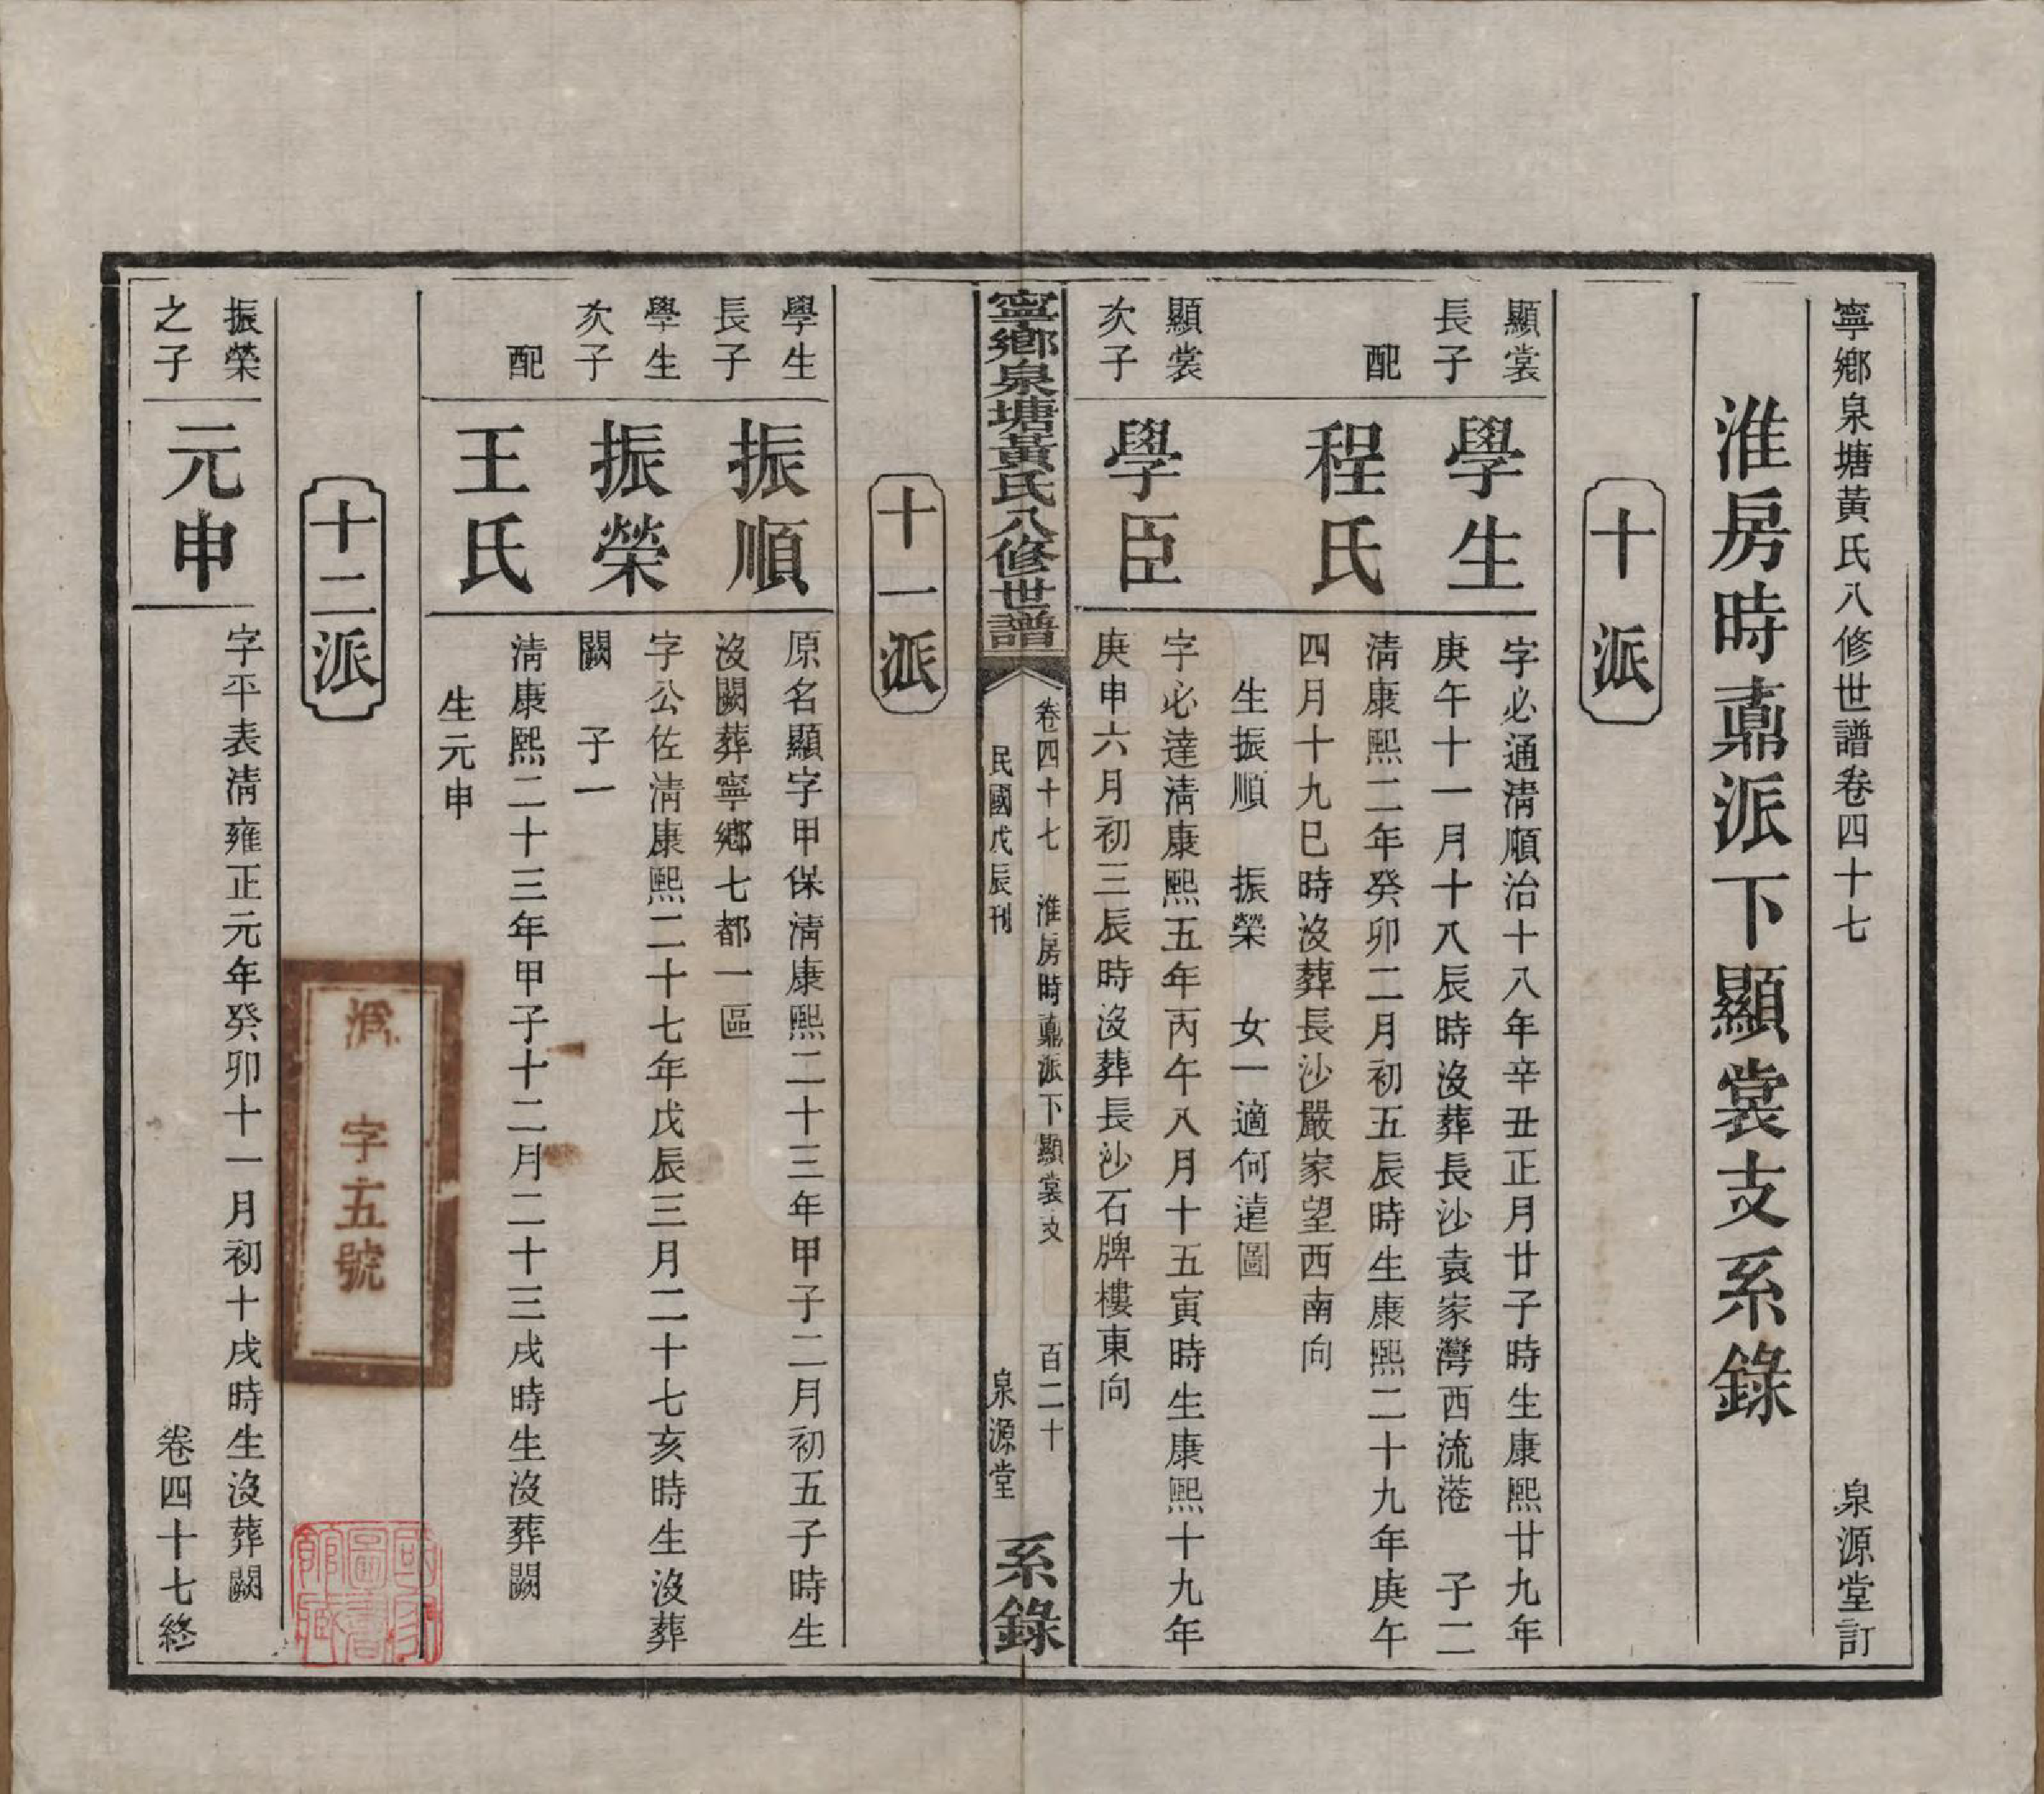 寧鄉泉塘黃氏八修世譜卷四十七 泉源堂訂
淮房時鼒派下顯裳支系錄
十派
顯裳長子 學生
字必通清順治十八年辛丑正月廿子時生康熙廿九年
庚午十一月十八辰時沒葬長沙袁家灣西流港 子二
配 程氏
清康熙二年癸卯二月初五辰時生康熙二十九年庚午
四月十九巳時沒葬長沙嚴家望西南向
生振順 振榮 女一適何遠圖
顯裳次子 學臣
字必達清康熙五年丙午八月十五寅時生康熙十九年
庚申六月初三辰時沒葬長沙石牌樓東向
寧鄉泉塘黃氏八修世譜
卷四十七 淮房時鼒派下顯裳支 百二十
民國戊辰刊 泉源堂
系錄
十一派
學生長子 振順
原名顯字甲保清康熙二十三年甲子二月初五子時生
沒闕葬寧鄉七都一區
學生次子 振榮
字公佐清康熙二十七年戊辰三月二十七亥時生沒葬
闕 子一
配 王氏
清康熙二十三年甲子十二月二十三戌時生沒葬闕
生元申
十二派
振榮之子 元申
字平表清雍正元年癸卯十一月初十戌時生沒葬闕
卷四十七終
字五號
國家圖書館藏